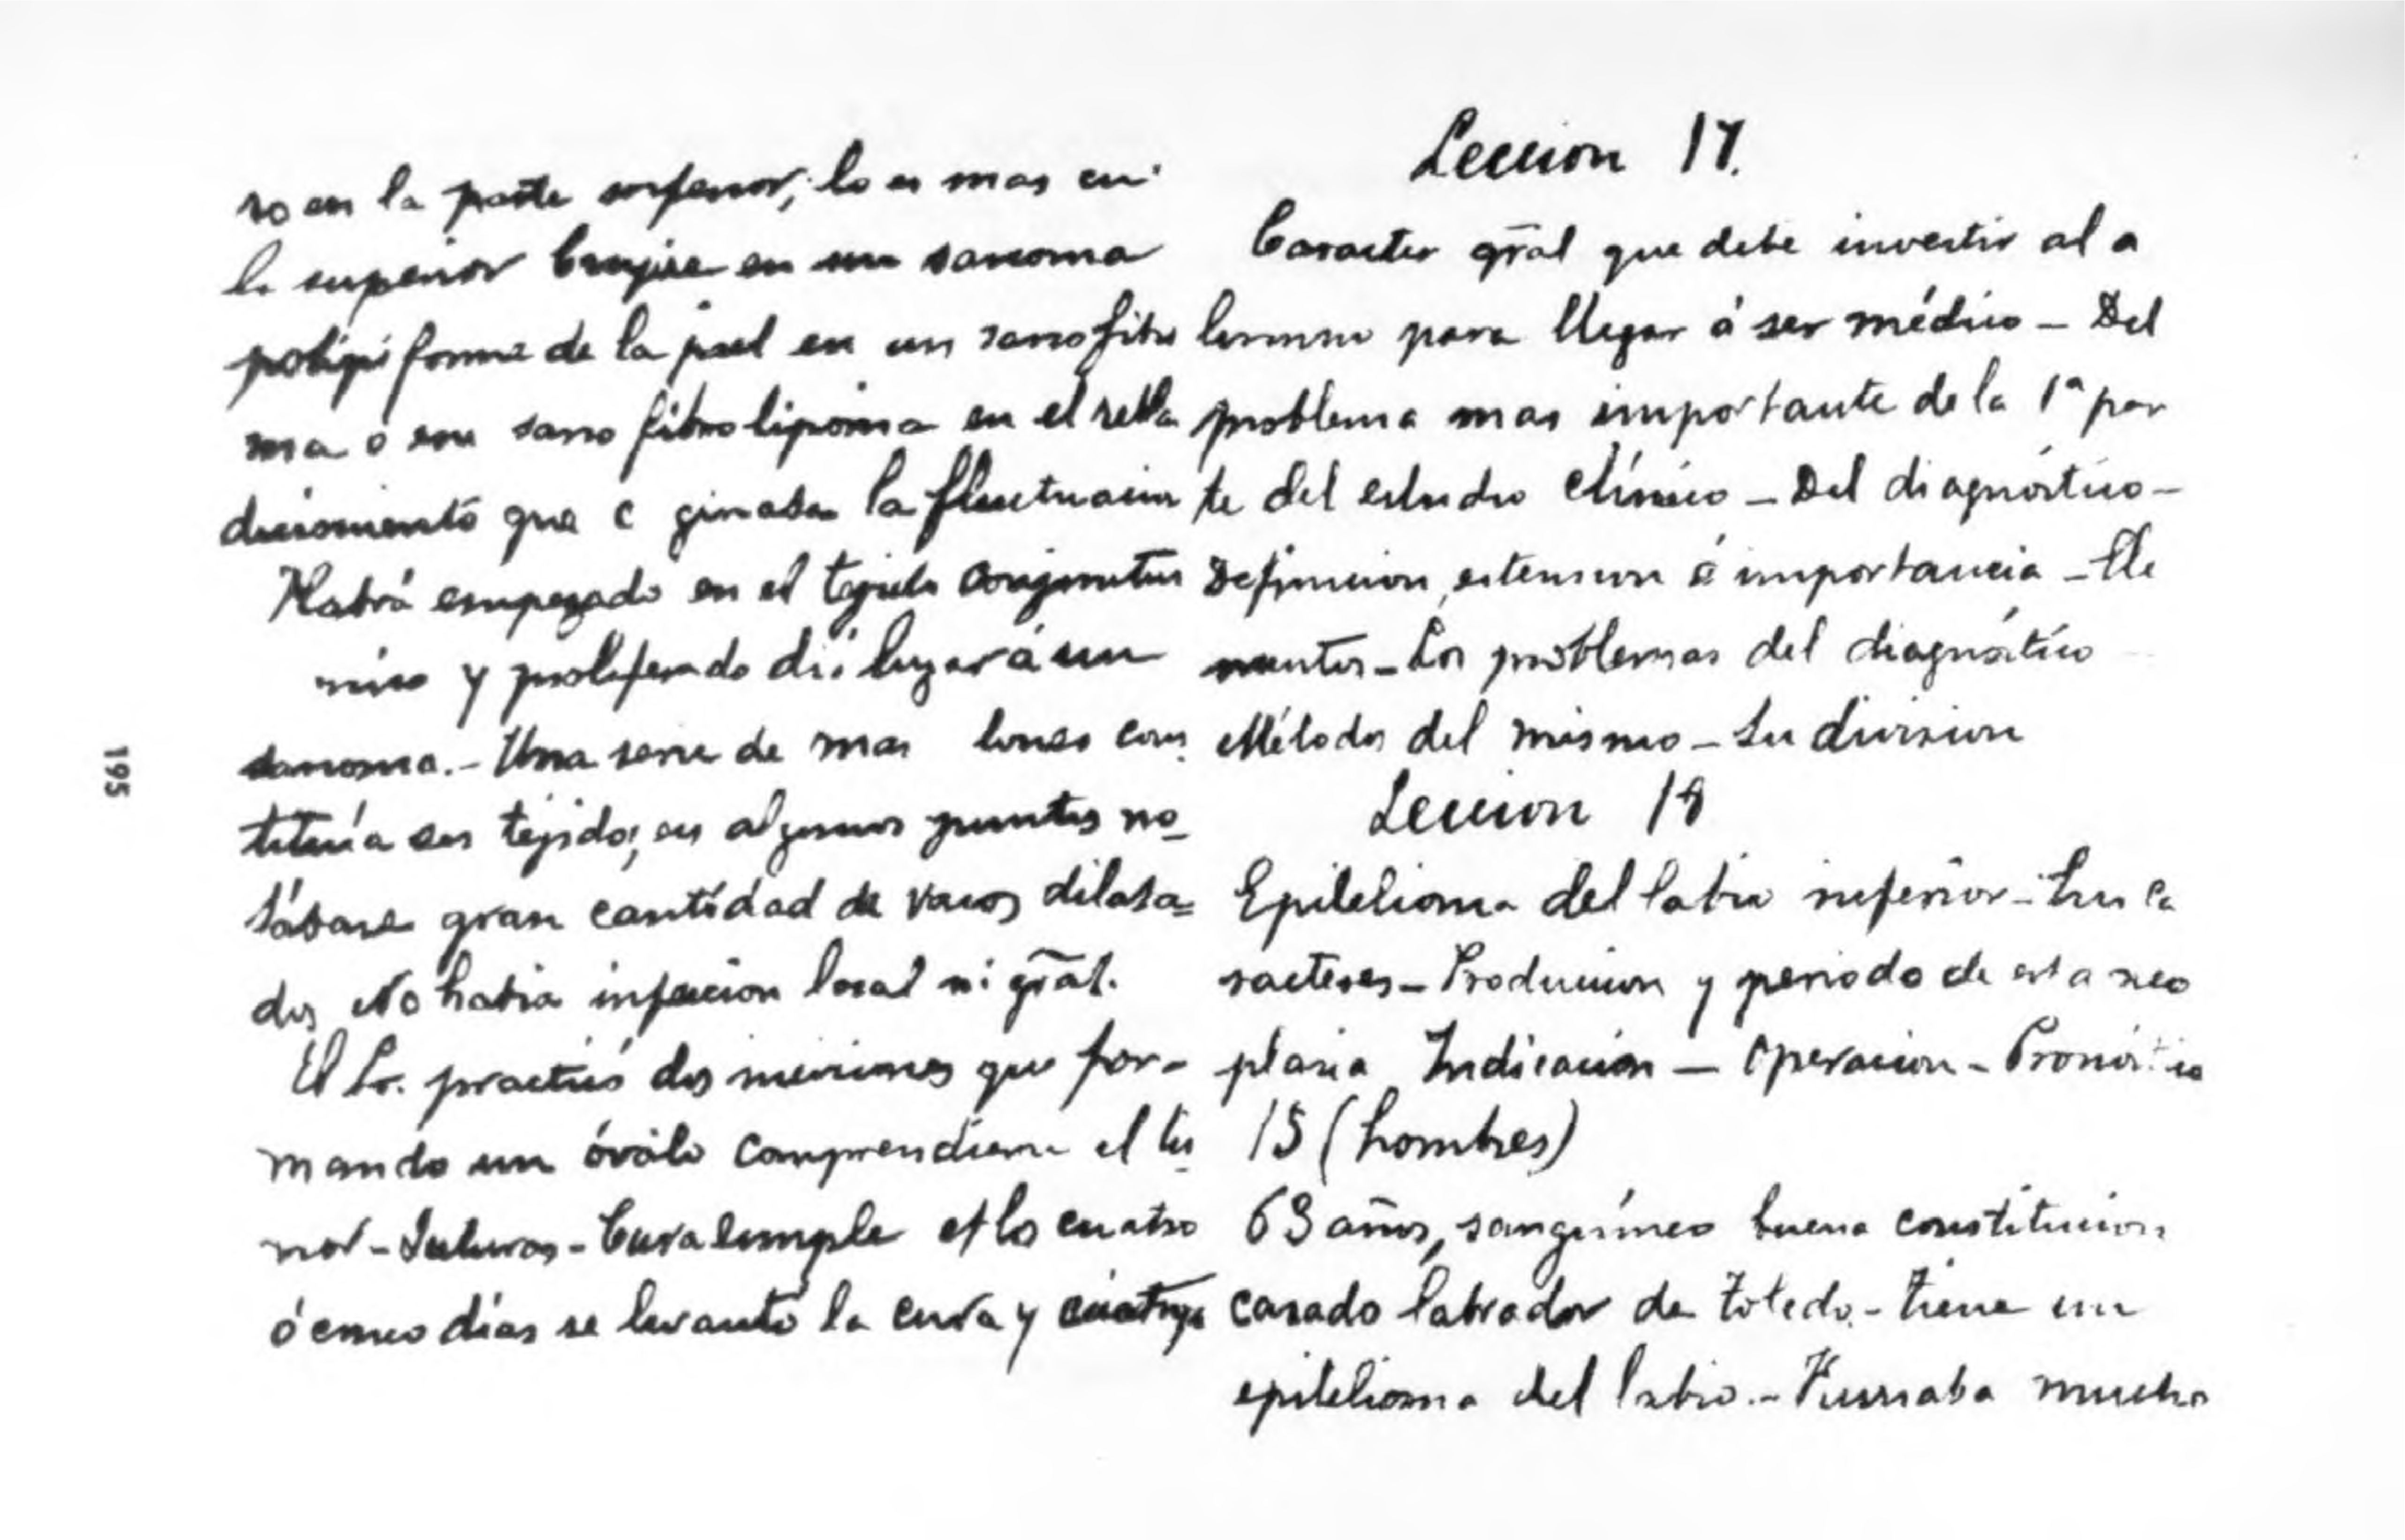 ro en la parte inferior, lo es mas en
la superior en un sarcoma
de la piel en un sarcofibro
ma o en sarco fibrolipoma en el rebla
decimiento que la fluctuacion
Habrá empezado en el tejido conjuntivo
y proliferado dió lugar á un
sarcoma.- Una serie de mas
tituía ese tejido, en algunos puntos no
tábase gran cantidad de vasos dilata=
dos No habia infeccion local ni gral.
El Sr. practicó dos incisiones que for-
mando un óvalo comprendieran el tu
mor - Suturas - Cura simple A los cuatro
ó cinco dias se levantó la cura y
Leccion 17.
Caracter gral que debe investir al a
lumno para llegar á ser médico - Del
problema mas importante de la 1ª par
te del estudio clínico - Del diagnóstico -
Definicion, estension é importancia - Ele
mentos - Los problemas del diagnóstico
Métodos del mismo - Su division
Leccion 18
Epitelioma del labio inferior - Sus ca
racteres - Produccion y periodo de esta neo
plasia Indicacion - Operacion - Pronóstico
15 (hombres)
63 años, sanguíneo buena constitucion
casado labrador de Toledo - tiene un
epitelioma del labio. - Fumaba mucho
195